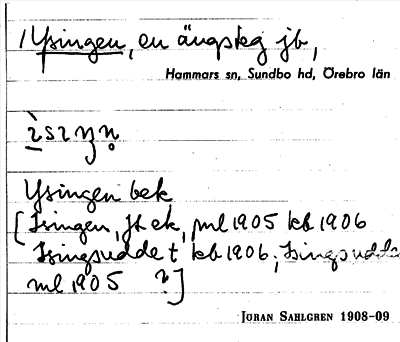 1/ Ysingen, en ängsteg jb,
Hammars sn, Sundbo hd, Örebro län
Ysingen bek
[Isingen, jb ek, ml 1905 kb 1906
Isingsuddet kb 1906, Isingsudde
ml 1905 ?]
JÖRAN SAHLGREN 1908-09